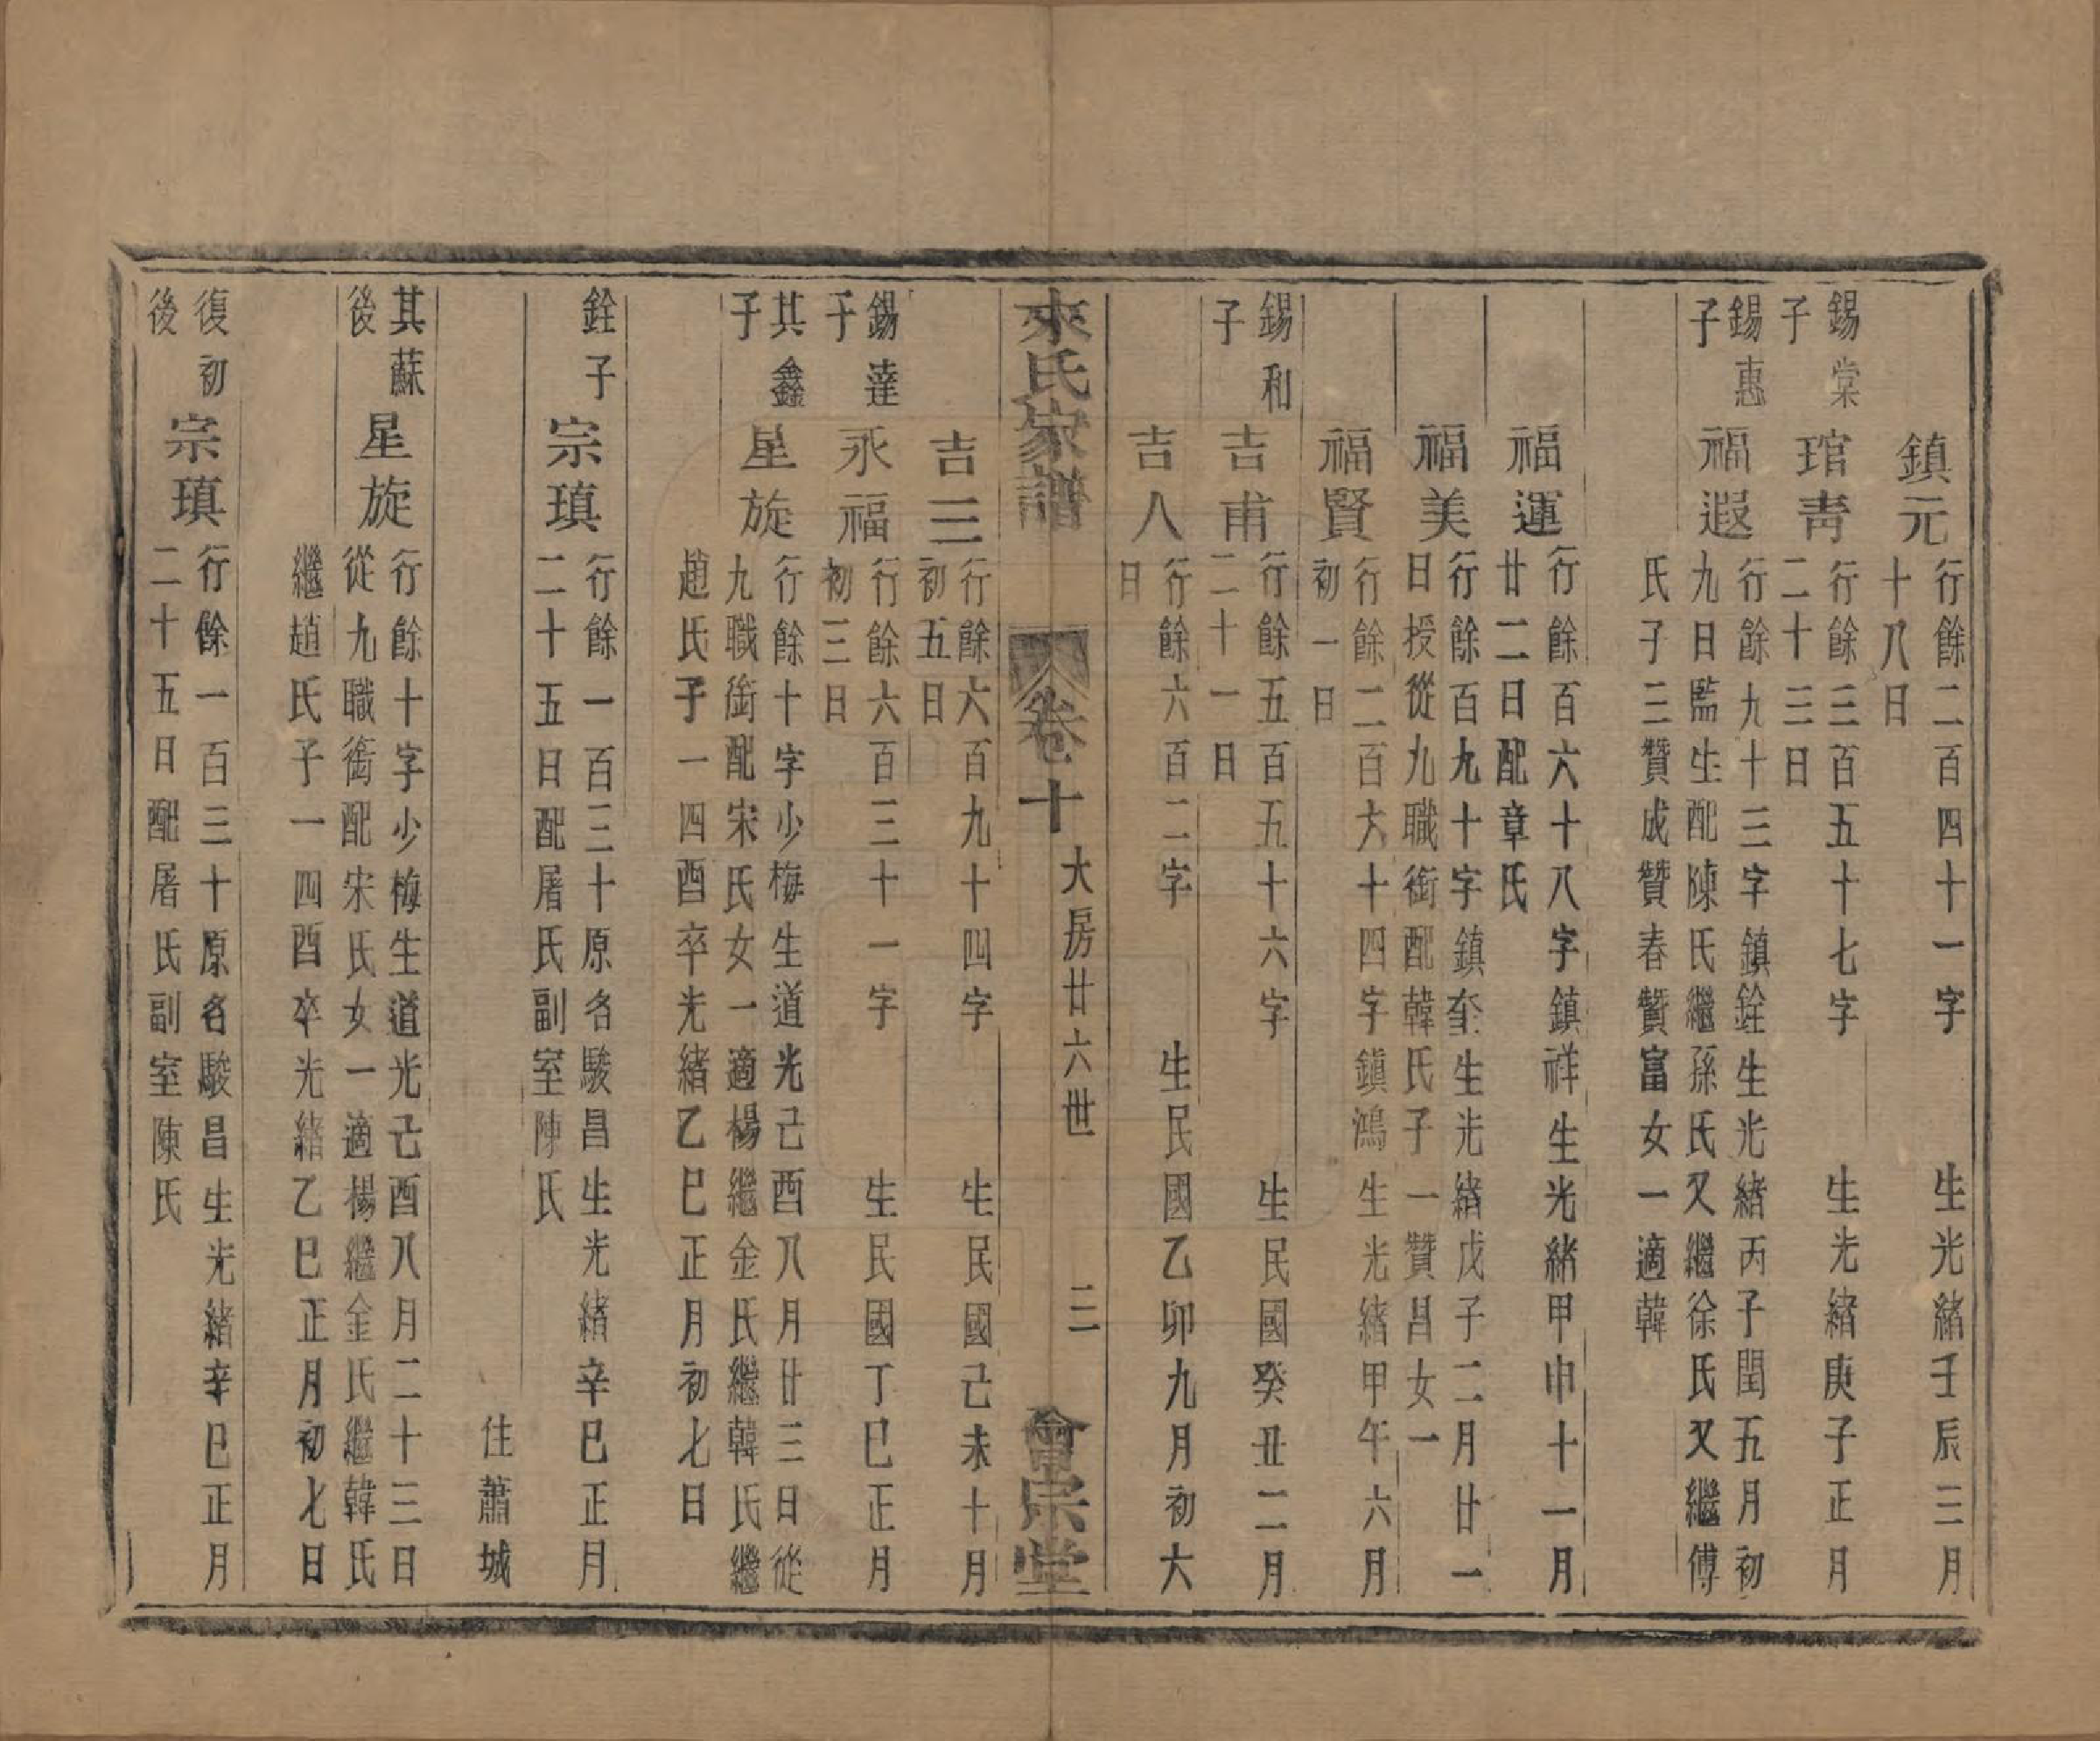 鎮元
行餘二百四十一字　生光緒壬辰三月
十八日
錫棠
子
琯青
行餘三百五十七字　生光緒庚子正月
二十三日
錫惠
子
福遐
行餘九十三字鎮銓生光緒丙子閏五月初
九日監生配陳氏繼孫氏又繼徐氏又繼傅
氏子三贊成贊春贊富女一適韓
福運
行餘百六十八字鎮祥生光緒甲申十一月
廿二日配章氏
福美
行餘百九十字鎮奎生光緒戊子二月廿一
日授從九職銜配韓氏子一贊昌女一
福賢
行餘二百六十四字鎮鴻生光緒甲午六月
初一日
錫和
子
吉甫
行餘五百五十六字　生民國癸丑二月
二十一日
吉人
行餘六百二字　生民國乙卯九月初六
日
來氏家譜　卷十　大房廿六世　二　會宗堂
吉三
行餘六百九十四字　生民國己未十月
初五日
錫達
子
永福
行餘六百三十一字　生民國丁巳正月
初三日
其鑫
子
星旋
行餘十字少梅生道光己酉八月廿三日從
九職銜配宋氏女一適楊繼金氏繼韓氏繼
趙氏子一四酉卒光緒乙巳正月初七日
銓子
宗瑱
行餘一百三十原名駿昌生光緒辛巳正月
二十五日配屠氏副室陳氏
住蕭城
其蘇
後
星旋
行餘十字少梅生道光己酉八月二十三日
從九職銜配宋氏女一適楊繼金氏繼韓氏
繼趙氏子一四酉卒光緒乙巳正月初七日
復初
後
宗瑱
行餘一百三十原名駿昌生光緒辛巳正月
二十五日配屠氏副室陳氏